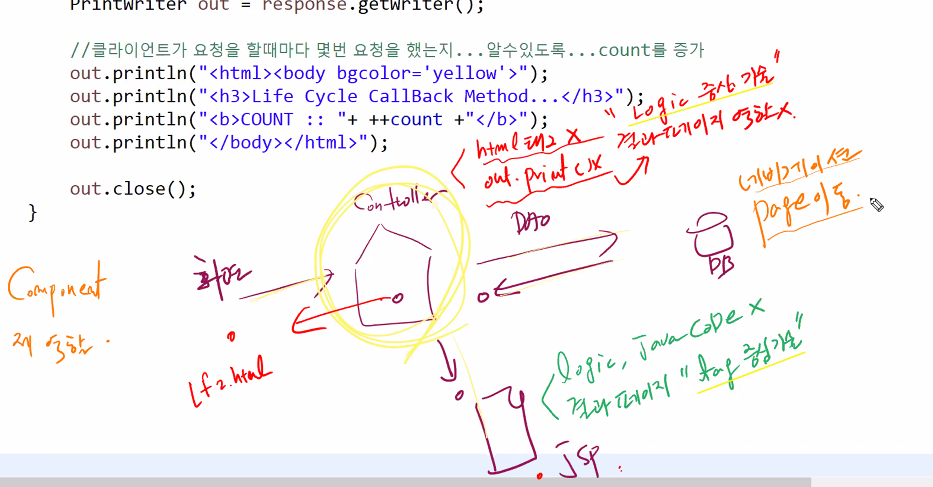 PrintWriter out = response.getWriter();
//클라이언트가 요청을 할때마다 몇번 요청을 했는지...알수있도록...count를 증가
out.println("<html><body bgcolor='yellow'>");
out.println("<h3>Life Cycle CallBack Method...</h3>");
out.println("<b>COUNT :: "+ ++count +"</b>");
out.println("</body></html>");
out.close();
}
"Logic 중심 기술"
html태그 X 결과페이지 역할X.
out.print() X
네비게이션
page이동.
Controller
DAO
DB
화면
Component
제 역할.
lf2.html
logic, Java CoDe X
결과 페이지 "tag 중심기술"
JSP